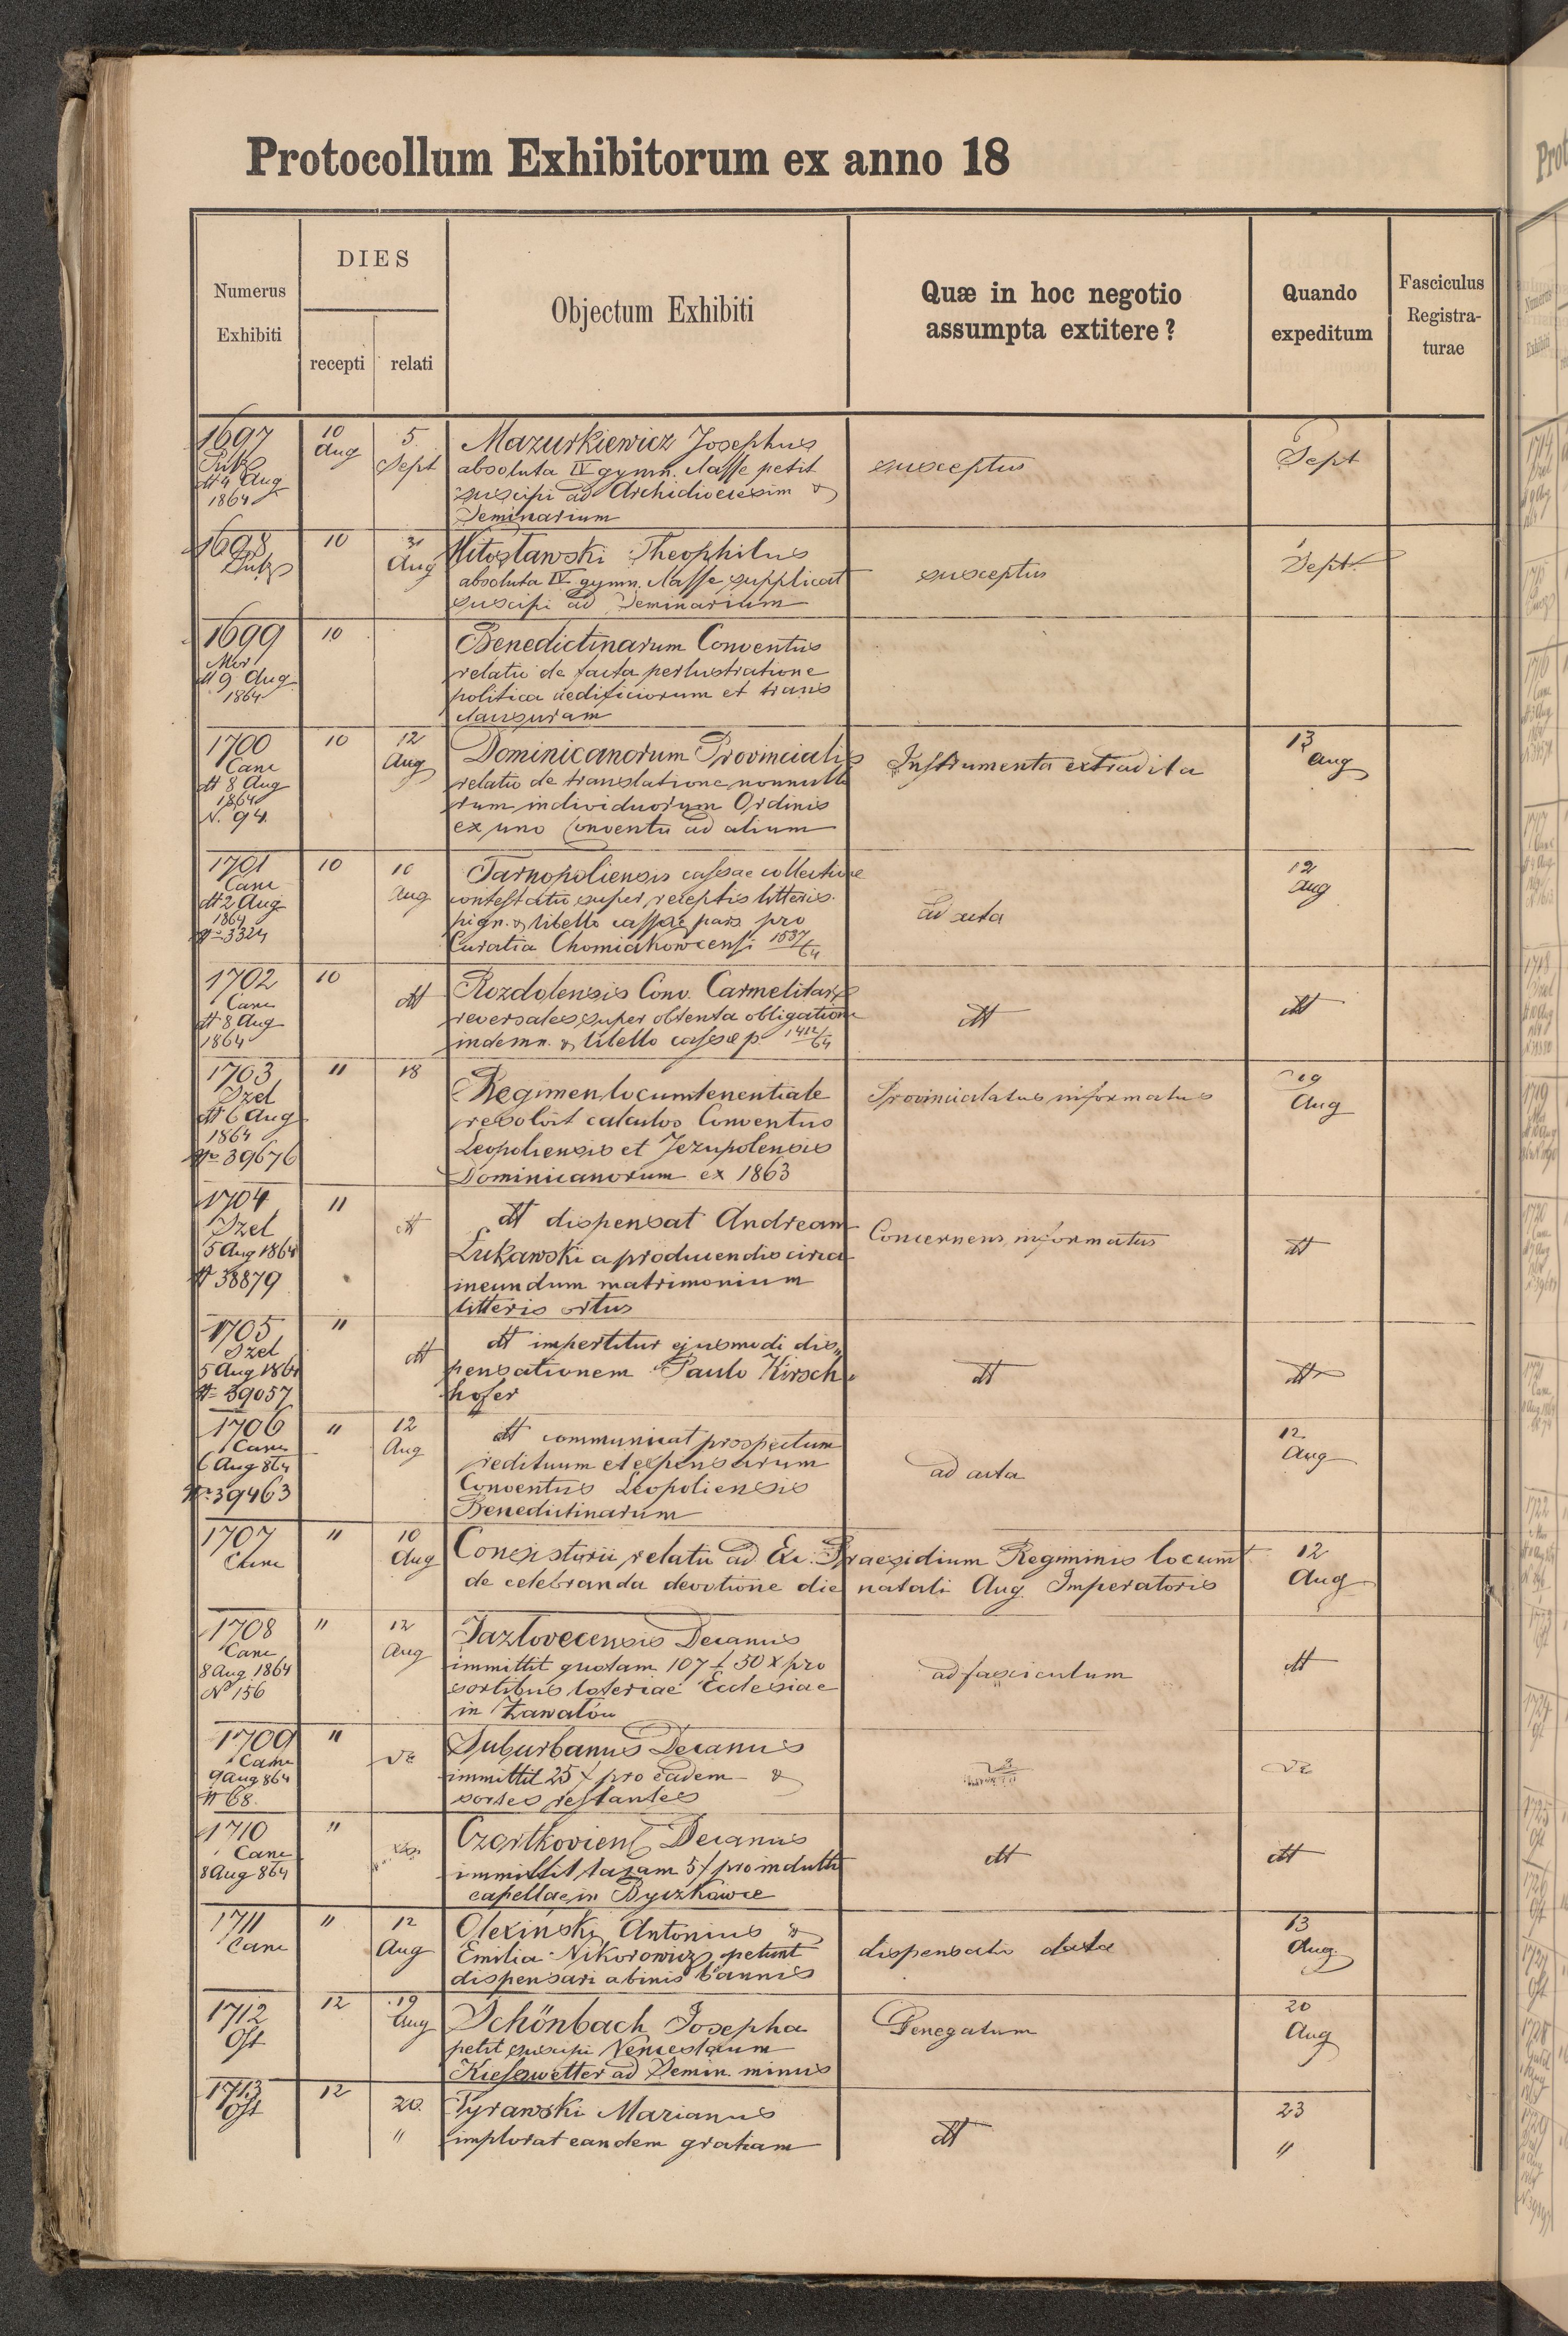 Protocollum Exhibitorum ex anno 18
Numerus
Exhibiti
DIES
recepti
relati
Objectum Exhibiti
Quæ in hoc negotio
assumpta extitere?
Quando
expeditum
Fasciculus
Registra-
turae
1697
4 Aug
1864
10
Aug
5
Sept
Mazurkiewicz Josephus
absoluta IV gymn. classe petit
suscipi ad Archidioecesim &
Seminarium
susceptus
Sept
1698
10
31
Aug
Theophilus
absoluta IV gymn. classe supplicat
suscipi ad Seminarium
susceptus
1
Sept
1699
Mor
dt 9 Aug
1864
10
Benedictinarum Conventus
relatio de facta perlustratione
politica aedificiorum et trans
clausuram
1700
Canc
dt 8 Aug
1864
N. 94
10
12
Aug
Dominicanorum Provincialis
relatio de translatione nonnullo
rum individuorum Ordinis
ex uno Conventu ad alium
Instrumenta extradita
13
Aug
1701
Canc
dt 2 Aug
1864
N 3324
10
10
Aug
Tarnopoliensis cassae collectivae
contestatio super receptis litteris
pign. & libello cassae pars. pro
Curatia Chomiakowcensi 1537/64
ad acta
12
Aug
1702
Canc
dt 8 Aug
1864
10
dtt
Rozdolensis Conv. Carmelitar
reversales super obtenta obligatione
indemn. & libello cassae p. 1412/64
dtt
dtt
1703
Izel
dt 6 Aug
1864
No 39676
11
18
Regimen locumtenentiale
resolvit calculos Conventus
Leopoliensis et Jezupolensis
Dominicanorum ex 1863
Provincialatus informatus
19
Aug
1704
Izel
5 Aug 1864
N 38879
11
dtt
dtt dispensat Andream
Lukawski a producendis circa
ineundum matrimonium
litteris ortus
Concernens informatus
dtt
1705
Izel
5 Aug 1864
N 39057
11
dtt
dtt impertitur ejusmodi dis„
pensationem Paulo Kirsch„
hofer
dtt
dtt
1706
Canc
6 Aug 864
No 39463
"
12
Aug
dtt communicat prospectum
redituum et expensarum
Conventus Leopoliensis
Benedictinarum
ad acta
12
Aug
1707
Canc
"
10
Aug
Consistorii relatio ad Exc. Praesidium Regiminis locumt
de celebranda devotione die natali Aug. Imperatoris
12
Aug
1708
Canc
8 Aug 1864
No 156
"
12
Aug
Jazlovecensis Decanus
immittit quotam 107 f 50 x pro
sortibus loteriae Ecclesiae
in Zawałów
ad fasciculum
dtt
1709
Canc
9 Aug 864
N 68
"
Suburbanus Decanus
immittit 25 f pro eadem &
sortes restantes
1710
Canc
8 Aug 864
"
Czortkoviens Decanus
immittit taxam 5 f pro indulto
capellae in Byczkowce
dtt
dtt
1711
Canc
"
12
Aug
Olexiński Antonius &
Emilia Nikorowicz petunt
dispensari a binis bannis
dispensatio data
13
Aug
1712
Ost
12
19
Aug
Schönbach Josepha
petit suscipi Venceslaum
Kiesswetter ad Semin. minus
Denegatum
20
Aug
1713
Ost
12
20
"
Tyrawski Marianus
implorat eandem gratiam
dtt
23
"